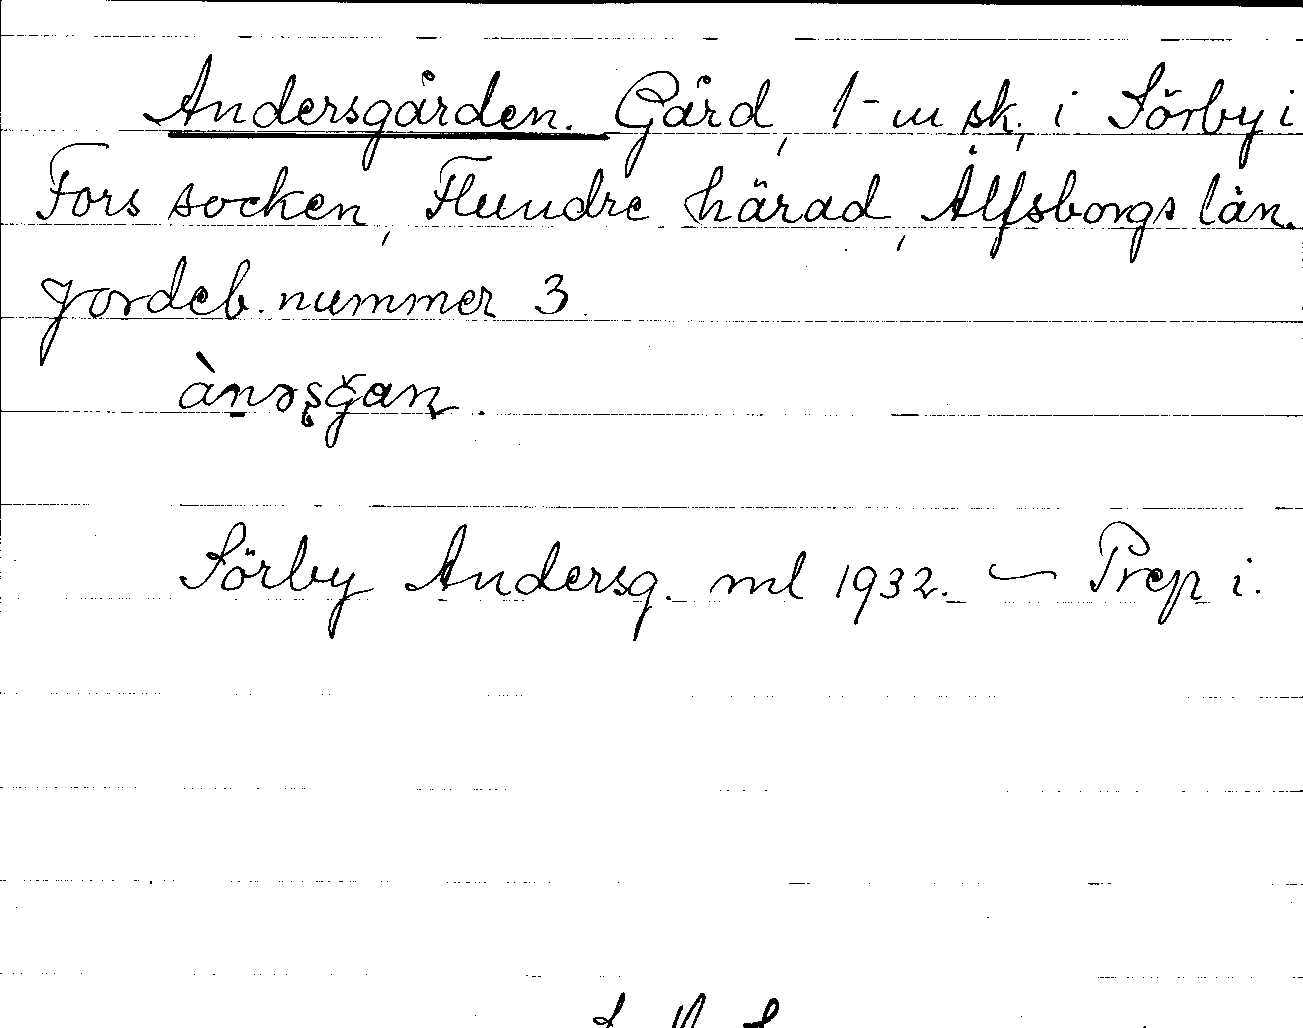 Andersgården. Gård, 1-m sk, i Sörby i
Fors socken, Flundre härad, Älfsborgs län.
Jordeb. nummer 3.
Sörby Andersg. ml 1932. — Prep i.